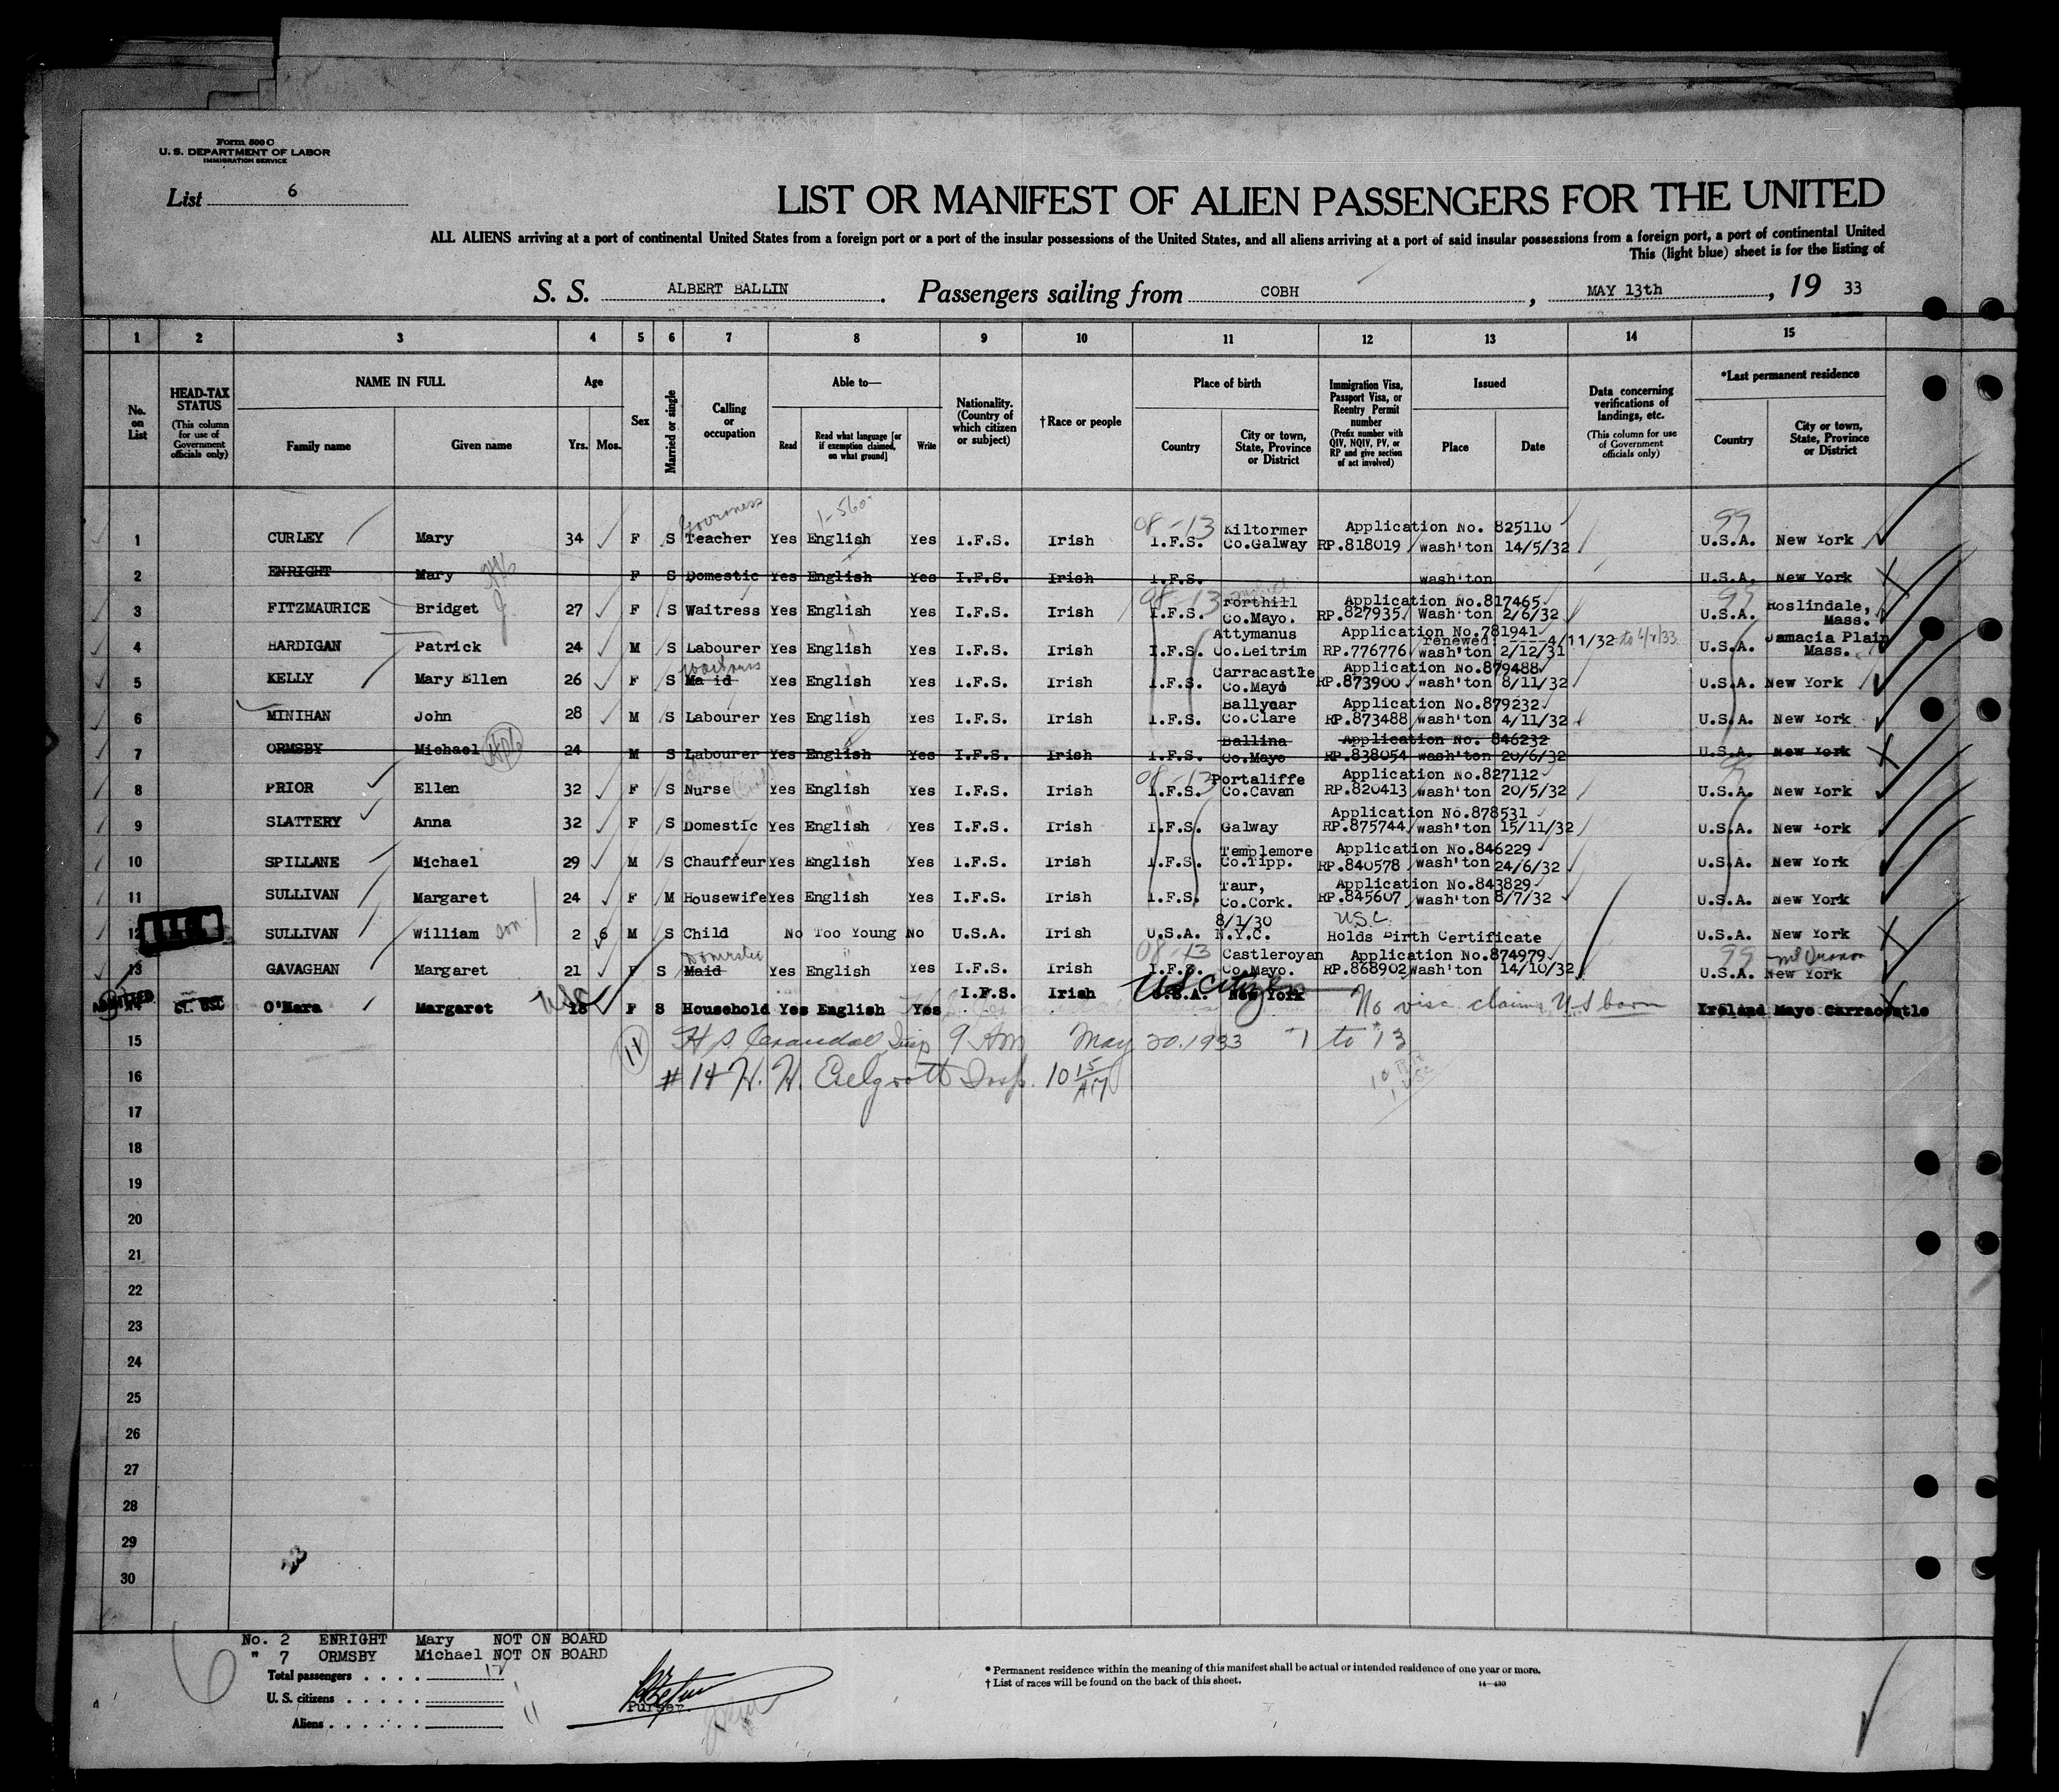 Form 500 C
U. S. DEPARTMENT OF LABOR
IMMIGRATION SERVICE
List 6
LIST OR MANIFEST OF ALIEN PASSENGERS FOR THE UNITED
ALL ALIENS arriving at a port of continental United States from a foreign port or a port of the insular possessions of the United States, and all aliens arriving at a port of said insular possessions from a foreign port, a port of continental United
This (light blue) sheet is for the listing of
S. S. ALBERT BALLIN. Passengers sailing from COBH, MAY 13th, 19 33
1 2 3 4 5 6 7 8 9 10 11 12 13 14 15
No. on List
HEAD-TAX STATUS (This column for use of Government officials only)
NAME IN FULL Family name Given name
Age Yrs. Mos.
Sex
Married or single
Calling or occupation
Able to— Read Read what language [or if exemption claimed, on what ground] Write
Nationality. (Country of which citizen or subject)
†Race or people
Place of birth Country City or town, State, Province or District
Immigration Visa, Passport Visa, or Reentry Permit number (Prefix number with QIV, NQIV, PV, or RP and give section of act involved)
Issued Place Date
Data concerning verifications of landings, etc. (This column for use of Government officials only)
*Last permanent residence Country City or town, State, Province or District
Governess 1-560 08-13 Kiltormer Application No. 825110 99
1 CURLEY Mary 34 F S Teacher Yes English Yes I.F.S. Irish I.F.S. Co.Galway RP.818019 Wash'ton 14/5/32 U.S.A. New York
2 ENRIGHT Mary F S Domestic Yes English Yes I.F.S. Irish I.F.S. Wash'ton U.S.A. New York
08-13 Forthill Application No.817465 99 Roslindale,
3 FITZMAURICE Bridget J. 27 F S Waitress Yes English Yes I.F.S. Irish I.F.S. Co.Mayo. RP.827935 Wash'ton 2/6/32 U.S.A. Mass.
Attymanus Application No.781941 renewed: ----4/11/32 Jamacia Plain
4 HARDIGAN Patrick 24 M S Labourer Yes English Yes I.F.S. Irish I.F.S. Co.Leitrim RP.776776 Wash'ton 2/12/31 U.S.A. Mass.
Waitress Carracastle Application No.879488
5 KELLY Mary Ellen 26 F S Maid Yes English Yes I.F.S. Irish I.F.S. Co.Mayo RP.873900 Wash'ton 8/11/32 U.S.A. New York
Ballycar Application No.879232
6 MINIHAN John 28 M S Labourer Yes English Yes I.F.S. Irish I.F.S. Co.Clare RP.873488 Wash'ton 4/11/32 U.S.A. New York
Ballina Application No. 846232
7 ORMSBY Michael 24 M S Labourer Yes English Yes I.F.S. Irish I.F.S. Co.Mayo RP.838054 Wash'ton 20/6/32 U.S.A. New York
08-13 Portaliffe Application No.827112 99
8 PRIOR Ellen 32 F S Nurse Yes English Yes I.F.S. Irish I.F.S. Co.Cavan RP.820413 Wash'ton 20/5/32 U.S.A. New York
Application No.878531
9 SLATTERY Anna 32 F S Domestic Yes English Yes I.F.S. Irish I.F.S. Galway RP.875744 Wash'ton 15/11/32 U.S.A. New York
Templemore Application No.846229
10 SPILLANE Michael 29 M S Chauffeur Yes English Yes I.F.S. Irish I.F.S. Co.Tipp. RP.840578 Wash'ton 24/6/32 U.S.A. New York
Taur, Application No.843829
11 SULLIVAN Margaret 24 F M Housewife Yes English Yes I.F.S. Irish I.F.S. Co.Cork. RP.845607 Wash'ton 8/7/32 U.S.A. New York
8/1/30 U.S.C.
12 SULLIVAN William son 2 6 M S Child No Too Young No U.S.A. Irish U.S.A. N.Y.C. Holds Birth Certificate U.S.A. New York
Domestic 08-13 Castleroyan Application No.874979 99 Mt Vernon
13 GAVAGHAN Margaret 21 F S Maid Yes English Yes I.F.S. Irish I.F.S. Co.Mayo. RP.868902 Wash'ton 14/10/32 U.S.A. New York
ADMITTED USC I.F.S. Irish US Citizen
14 O'Mara Margaret 18 F S Household Yes English Yes U.S.A. New York No visa claims U S born Ireland Mayo Carracastle
15 11 H S Crandall Insp 9 AM May 20, 1933 #1 to #13
16 #14 H. H. Insp. 10 15 AM
17
18
19
20
21
22
23
24
25
26
27
28
29
30
No. 2 ENRIGHT Mary NOT ON BOARD
" 7 ORMSBY Michael NOT ON BOARD
Total passengers . . . . 12
U. S. citizens . . . . . 1
Aliens . . . . . . 11
Purser.
* Permanent residence within the meaning of this manifest shall be actual or intended residence of one year or more.
† List of races will be found on the back of this sheet.
14—430